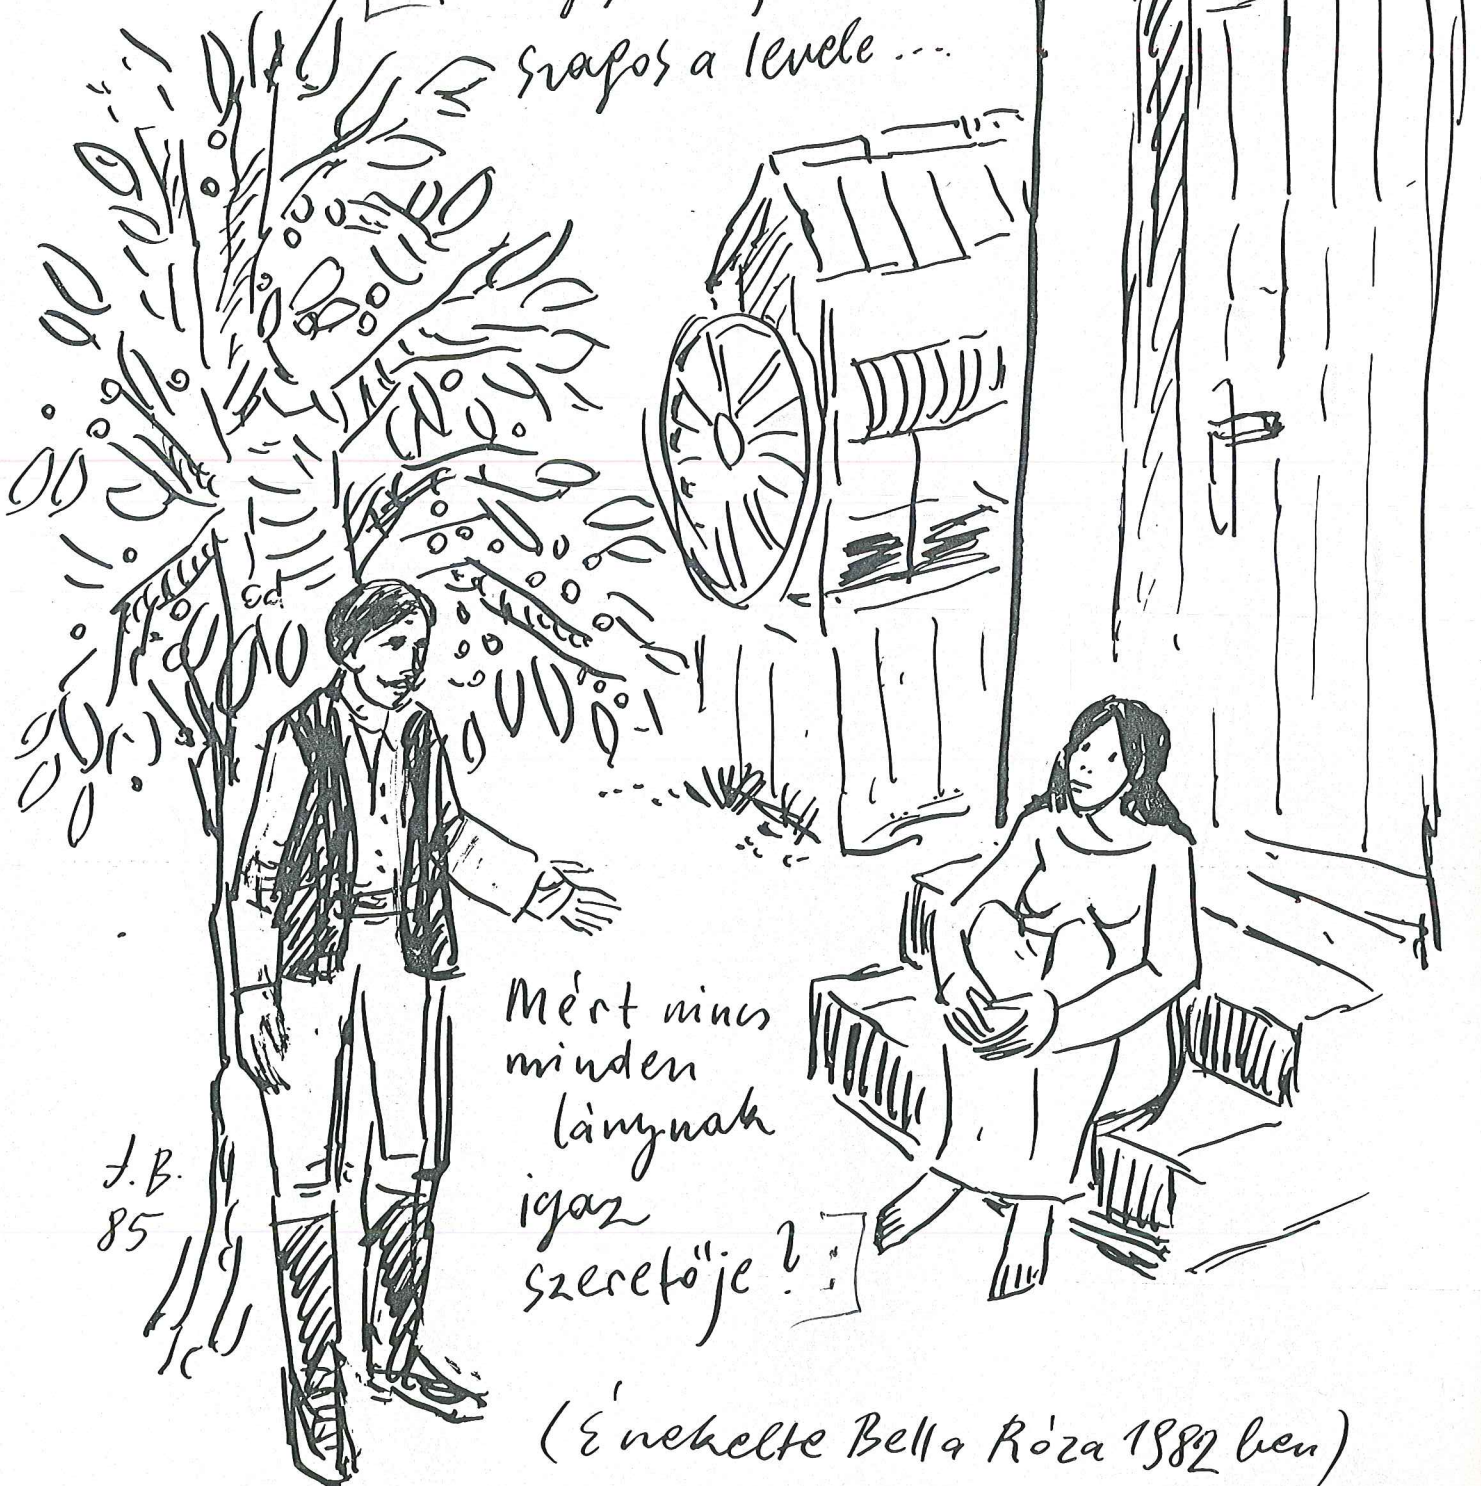 szagos a levele ....
Mért nincs
minden
lánynak
igaz
szeretője ?
J.B.
85
(Énekelte Bella Róza 1982 ben)